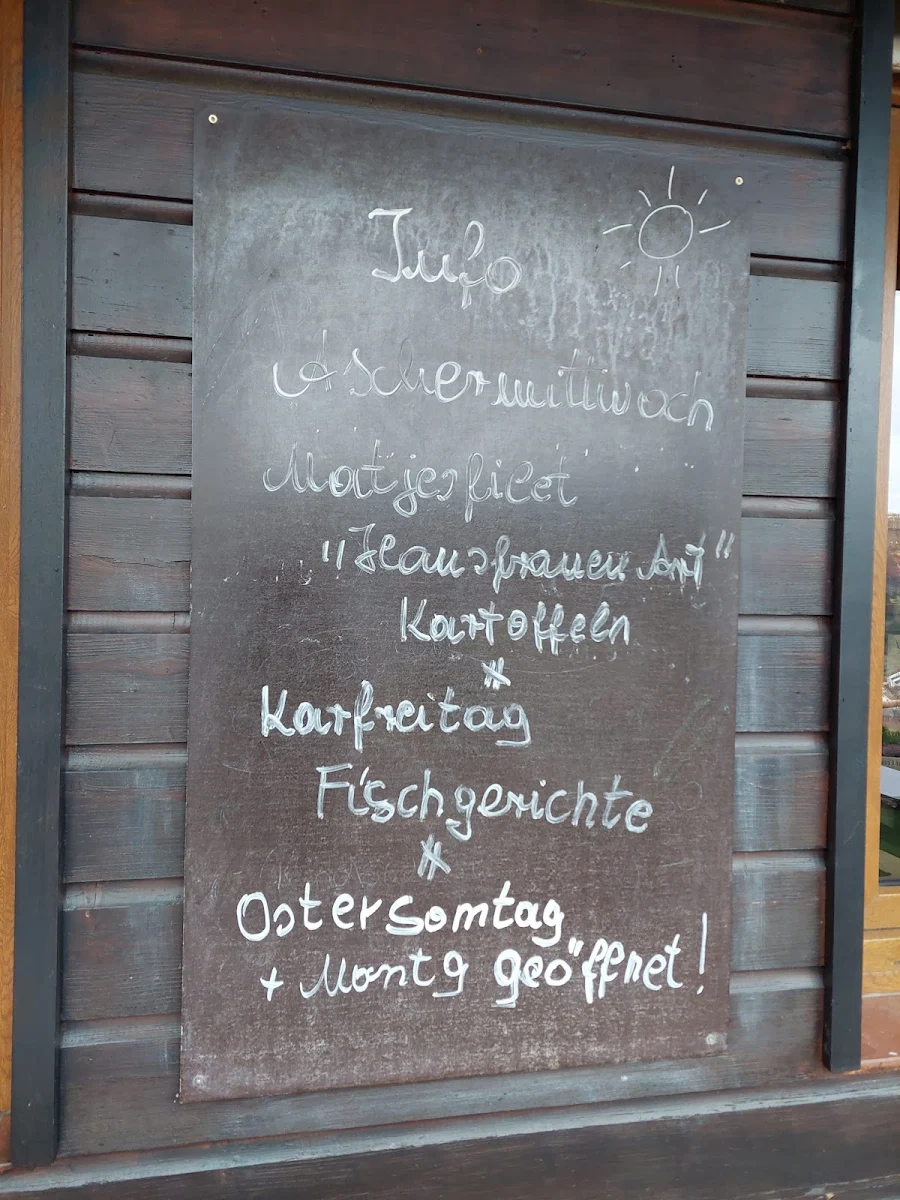 Info
Aschermittwoch
Matjesfilet
"Hausfrauen Art"
Kartoffeln
*
Karfreitag
Fischgerichte
*
Ostersomtag
+ Montg geöffnet!